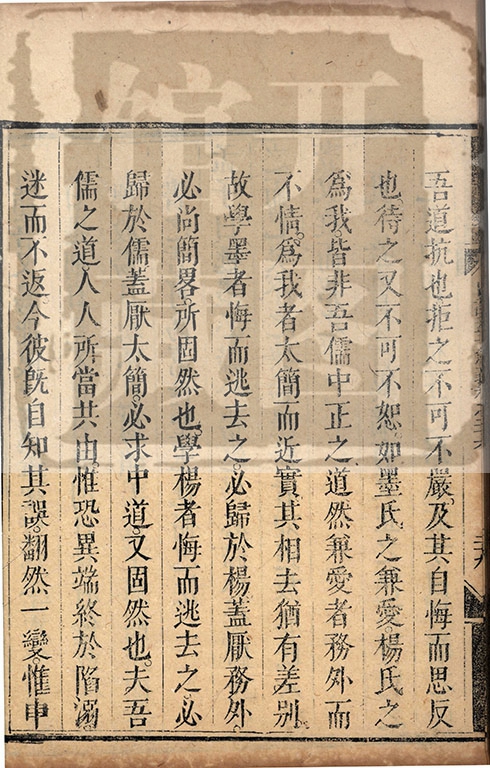 吾道抗也拒之不可不嚴。及其自悔而思反
也待之又不可不恕。如墨氏之兼愛。楊氏之
爲我皆非吾儒中正之道然兼愛者務外而
不情。爲我者太簡而近實其相去猶有差別。
故學墨者悔而逃去之。必歸於楊蓋厭務外。
必尚簡畧所固然也。學楊者悔而逃去之必
歸於儒蓋厭太簡。必求中道。又固然也。夫吾
儒之道人人所當共由。惟恐異端終於陷溺
迷而不返。今彼旣自知其誤。翻然一變。惟申